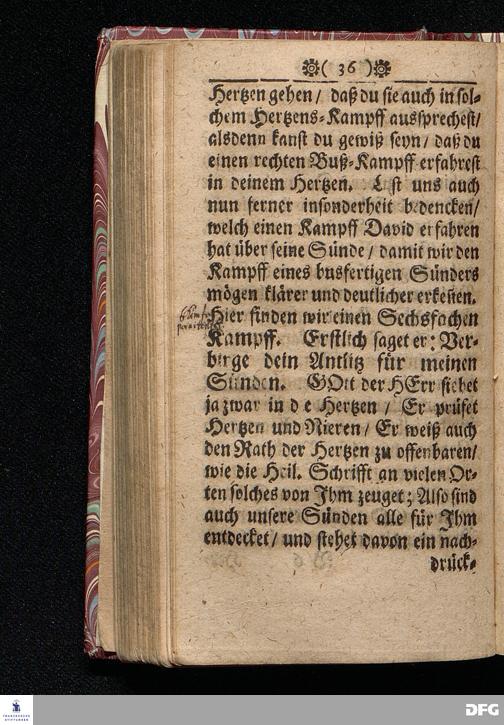 ( 36 )
Hertzen gehen / daß du sie auch in sol-
chem Hertzens-Kampff aussprechest /
alsdenn kanst du gewiß seyn / daß du
einen rechten Buß-Kampff erfahrest
in deinem Hertzen. Last uns auch
nun ferner insonderheit bedencken /
welch einen Kampff David erfahren
hat über seine Sünde / damit wir den
Kampff eines busfertigen Sünders
mögen klärer und deutlicher erkeñen.
Hier finden wir einen Sechsfachen
Kampff. Erstlich saget er: Ver-
birge dein Antlitz für meinen
Sünden. GOtt der HErr siehet
ja zwar in die Hertzen / Er prüfet
Hertzen und Nieren / Er weiß auch
den Rath der Hertzen zu offenbaren /
wie die Heil. Schrifft an vielen Or-
ten solches von Ihm zeuget; Also sind
auch unsere Sünden alle für Ihm
entdecket / und stehet davon ein nach-
drück-
FRANCKESCHE
STIFTUNGEN
DFG